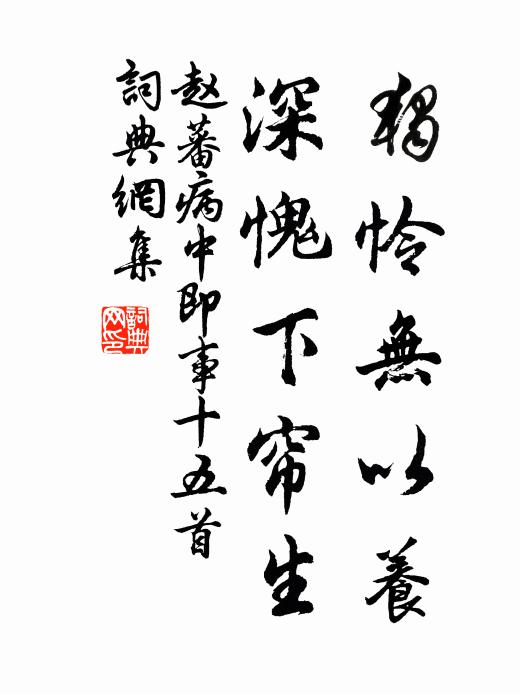 獨怜無以養
深愧下帘生
赵蕃病中即事十五首
詞典網集
詞典
网印